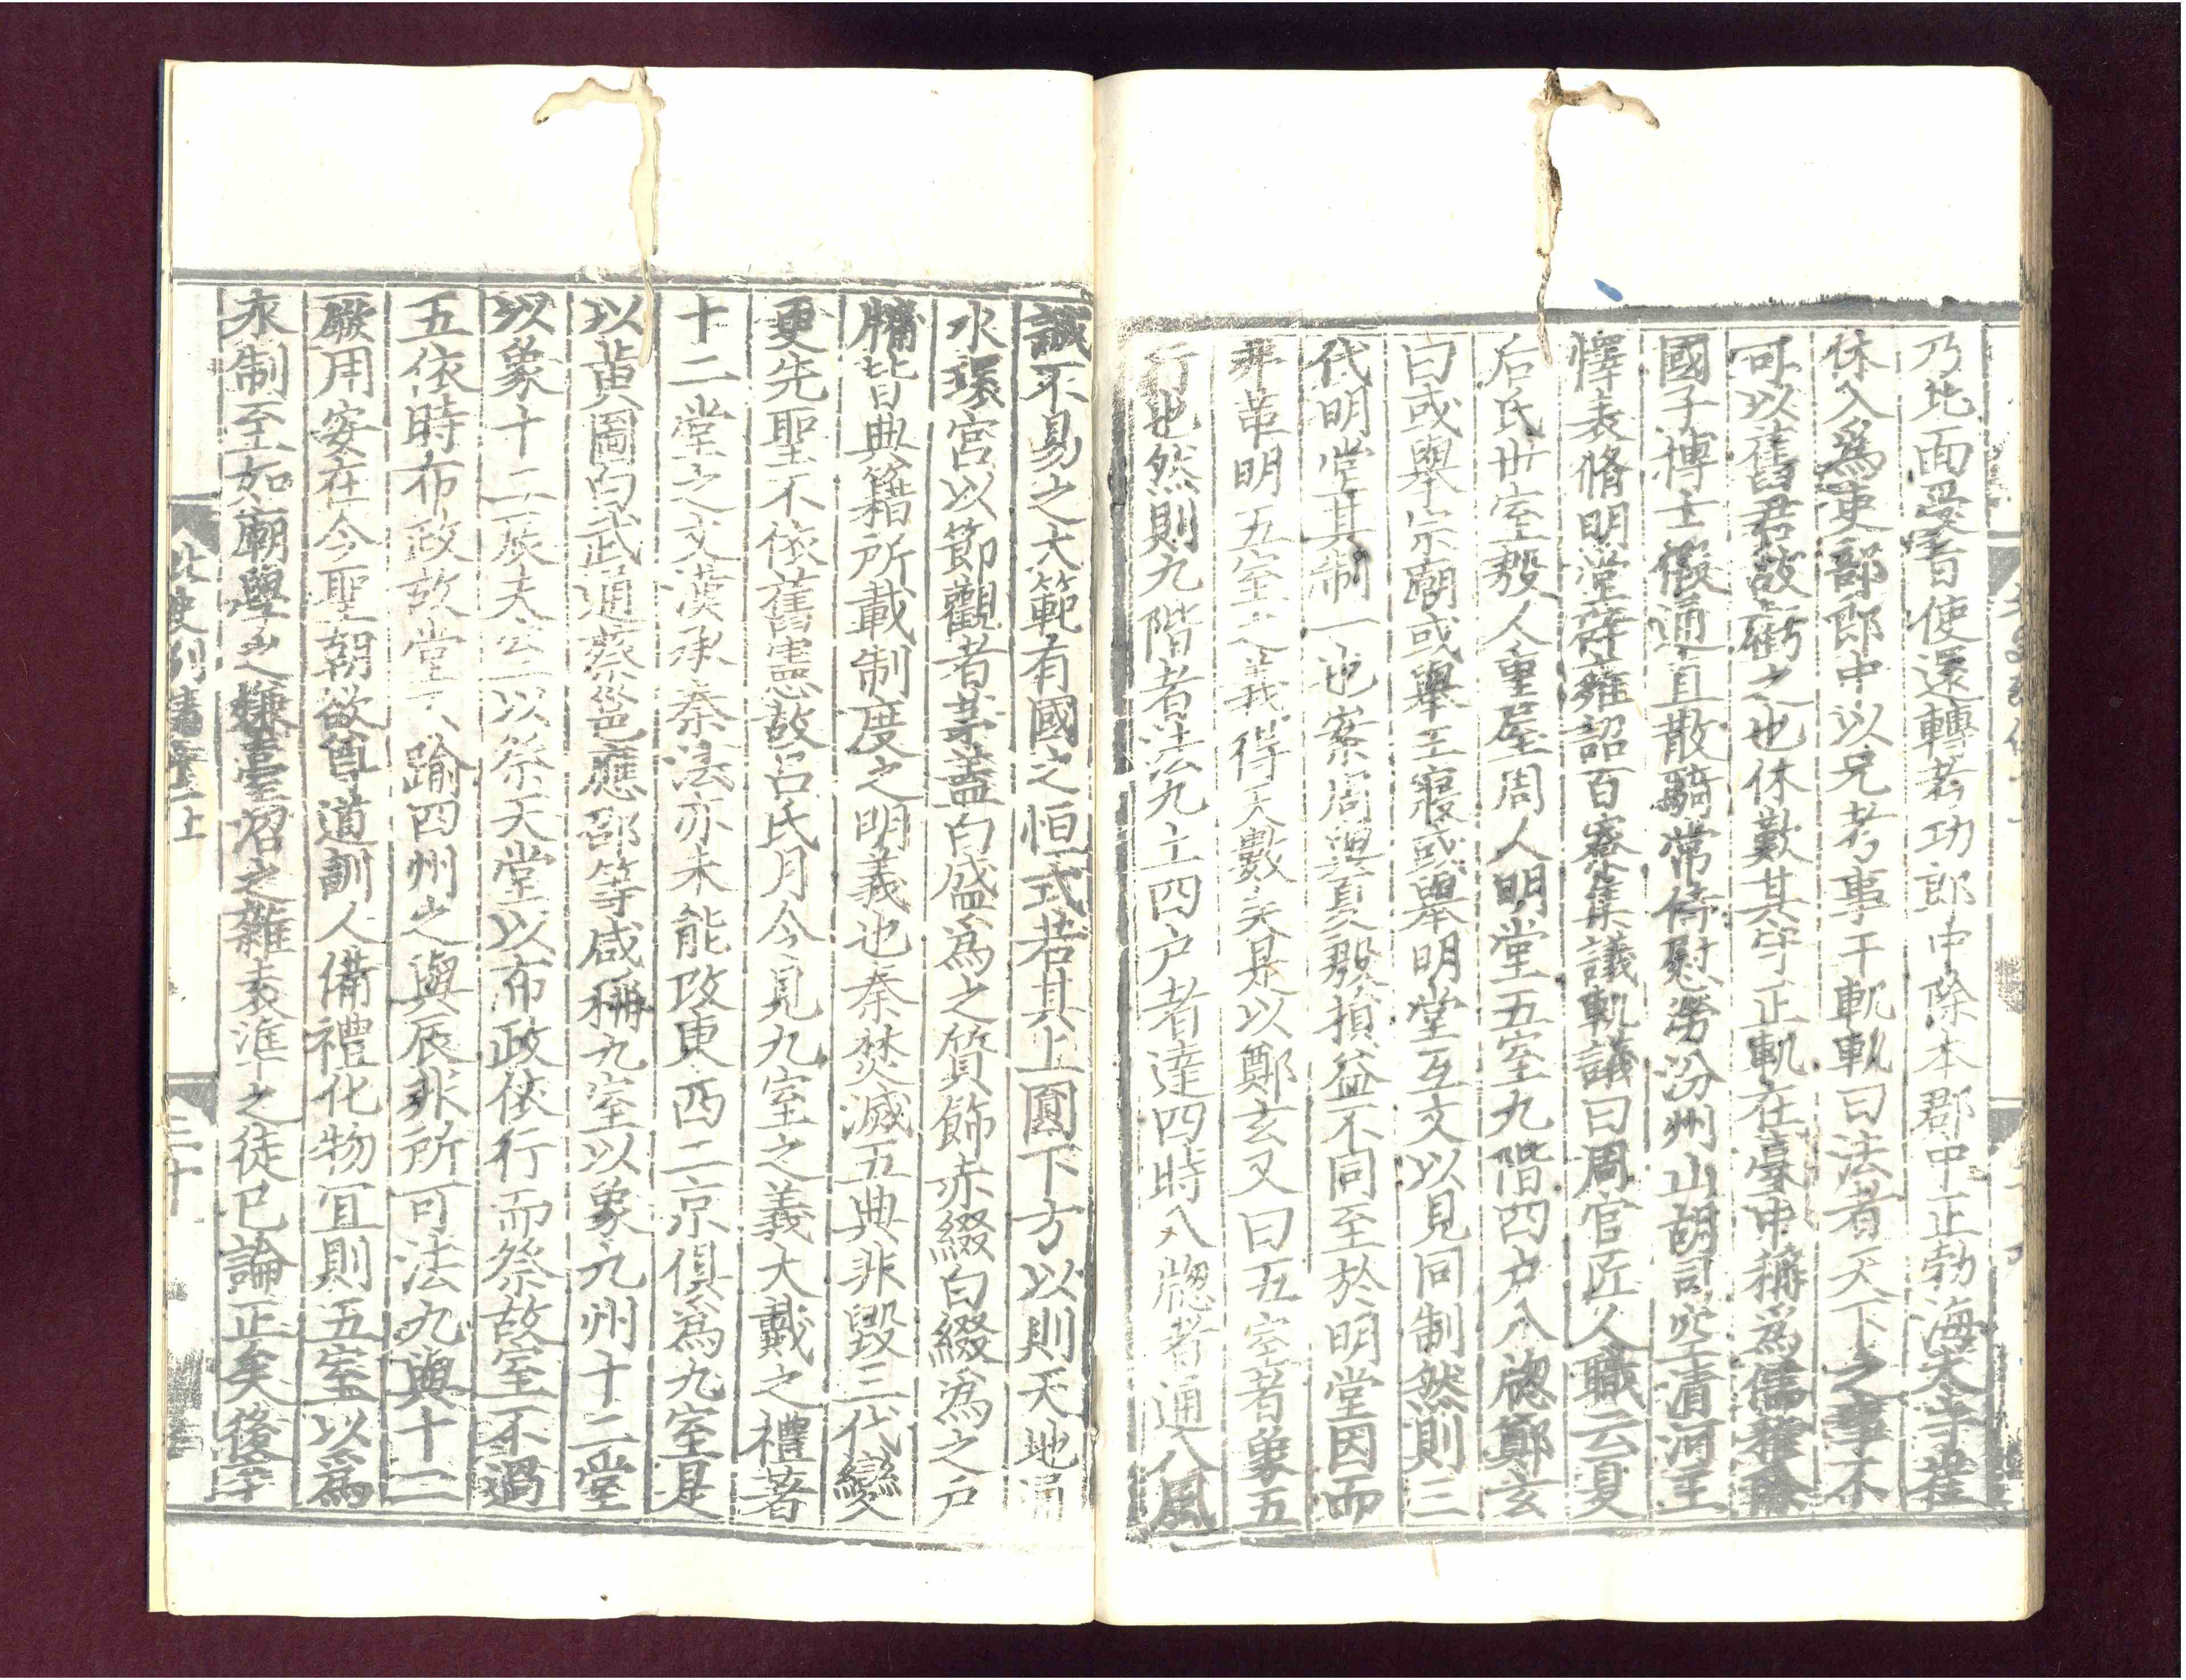 乃北面受音使還轉考功郎中除本郡中正勃海太守崔
休入爲吏部郎中以兄考事干軌軌曰法者天下之事不
可以舊君故虧之也休歎其守正軌在臺中稱爲儒雅除
國子博士假通直散騎常侍慰勞汾州山胡司空清河王
懌表脩明堂辟雍詔百寮集議軌議曰周官匠人職云夏
后氏世室殷人重屋周人明堂五室九階四户八牕鄭玄
曰或舉宗廟或舉王寢或舉明堂互文以見同制然則三
代明堂其制一也案周與夏殷損益不同至於明堂因而
弗革明五室之義得天數矣是以鄭玄又曰五室者象五
行也然則九階者法九土四户者達四時八牕者通八風
誠不易之大範有國之恒式若其上圓下方以則天地通
水環宮以節觀者茅蓋白盛爲之質飾赤綴白綴爲之户
牖皆典籍所載制度之明義也秦焚滅五典非毁三代變
更先聖不依舊憲故吕氏月令見九室之義大戴之禮著
十二堂之文漢承秦法亦未能改東西二京俱爲九室是
以黄圖白武通蔡邕應邵等咸稱九室以象九州十二堂
以象十二辰夫室以祭天堂以布政依行而祭故室不過
五依時布政故堂不踰四州之與辰非所可法九與十二
厥用安在今聖朝欲尊道訓人備禮化物宜則五室以爲
永制至如廟學之嫌臺沼之雜袁準之徒已論正矣後卒
北史列傳
二十